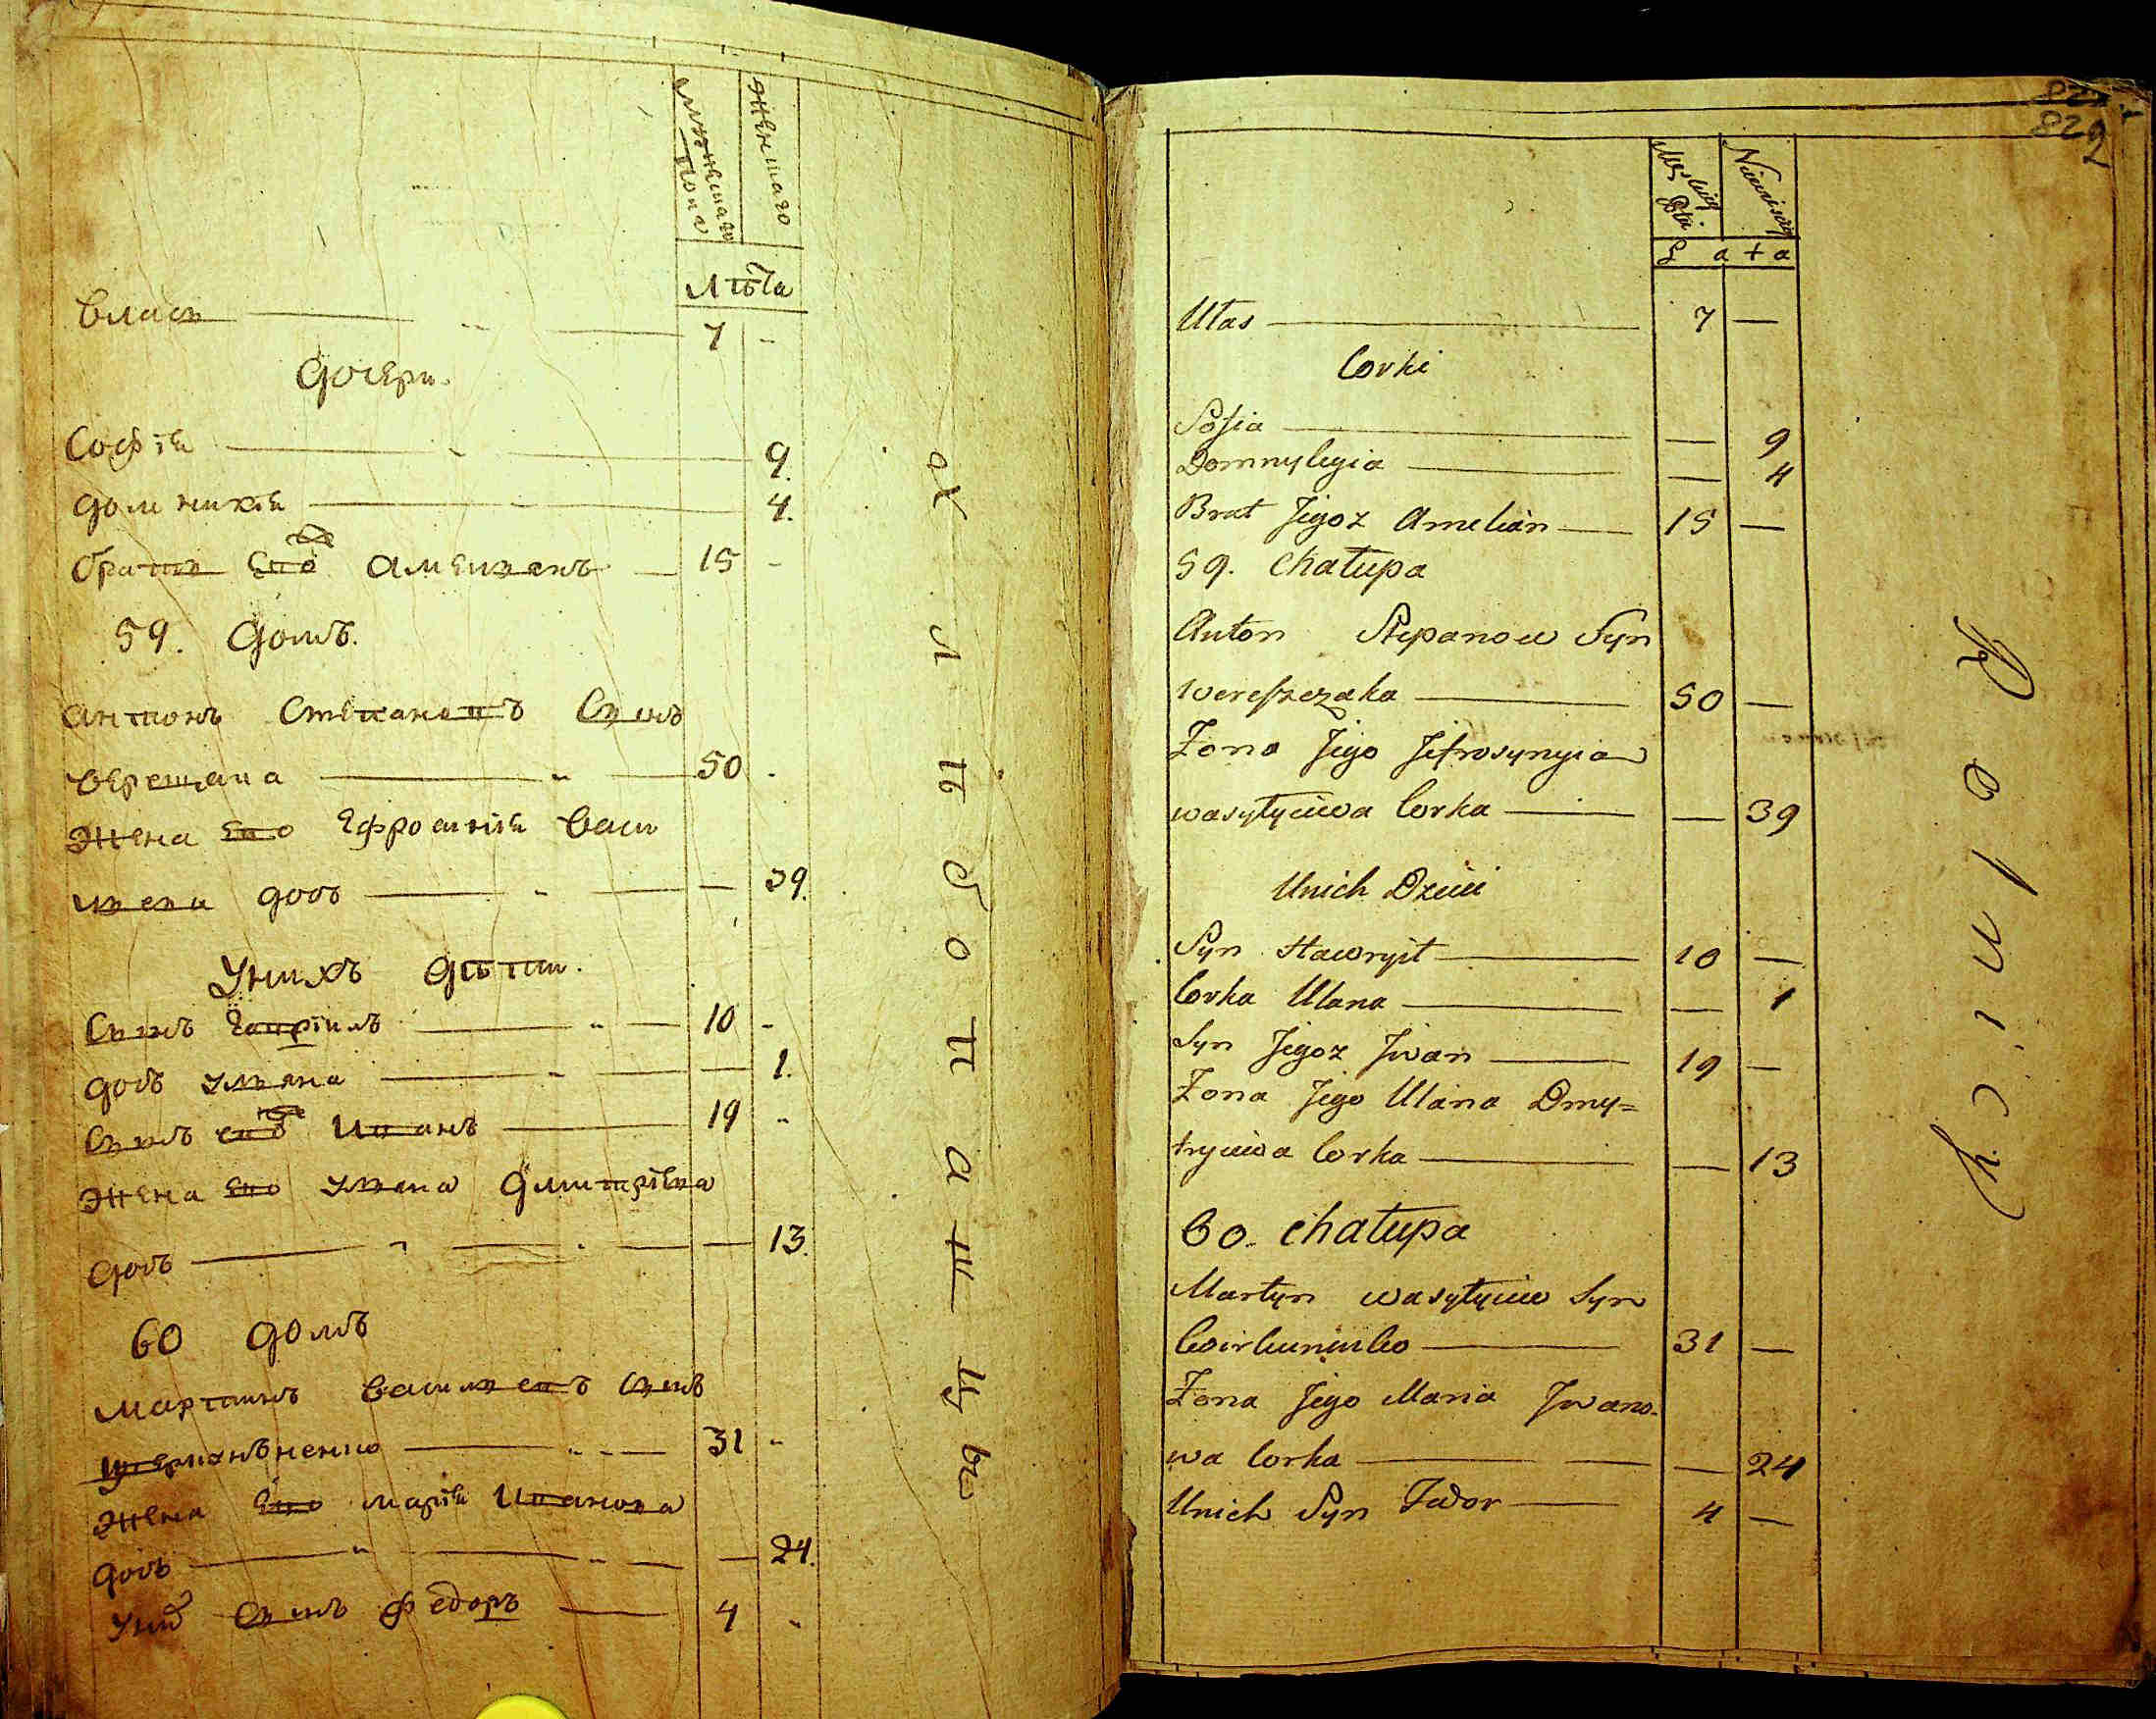 мужеска
пола
женшаго
лѣта
Власъ 7 -
Дочери.
Софія 9.
Домникія 4.
братъ его Амелианъ 15 -
59. Домъ.
Антонъ Степановъ Сынъ
Верещака 50 -
Жена его Ефросинія Васи
льева дочь — 39.
У нихъ Дѣти.
Сынъ Гавріилъ 10 -
дочь Ульяна — 1.
Сынъ его Иванъ 19 -
Жена его Ульяна Дмитріева
дочь — 13.
60 домъ
Мартинъ Васильевъ Сынъ
31 -
Жена его Марія Иванова
дочь — 24.
У них Сынъ Федоръ 4 -
Х л ѣ б о п а ш ц ы
829
L a t a
Ułas 7 —
Corki
Sofia — 9
Domnykyia — 4
Brat Jegoż Amelian 15 —
59. Chałupa
Anton Stepanow Syn
Wereszczaka 50 —
Żona Jego Jefrosynyia
Wasylyiewa Corka — 39
Unich Dzieci
Syn Hawryił 10 —
Corka Ulana — 1
Syn Jegoż Jwan 19 —
Żona Jego Ulana Dmy=
tryiewa Corka — 13
60. Chałupa
Martyn Wasylyiew Syn
31 —
Żona Jego Maria Jwano-
wa Corka — 24
Unich Syn Fedor 4 —
R o l n i c y